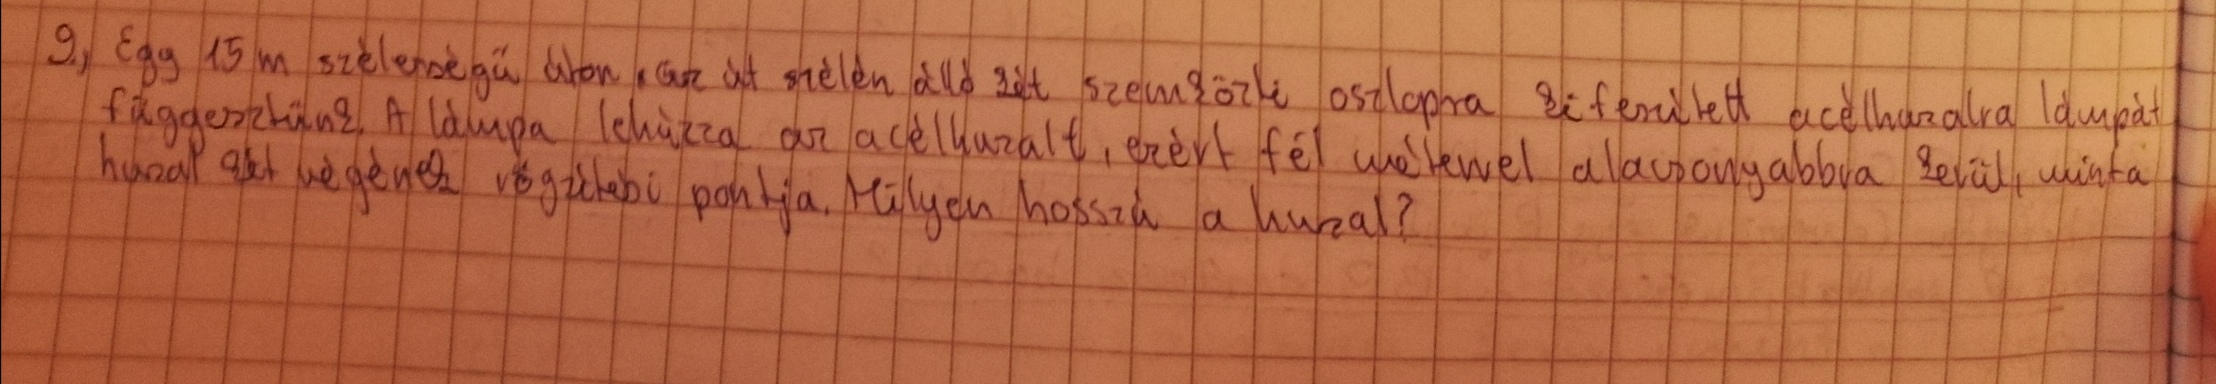 9, Egy 15 m szélességű úton, az út szélén álló két szemközti oszlopra kifeszített acélhuzalra lámpát
függesztünk. A lámpa lehúzza az acélhuzalt, ezért fél méterrel alacsonyabbra kerül, mint a
huzal két végének rögzítési pontja. Milyen hosszú a huzal?